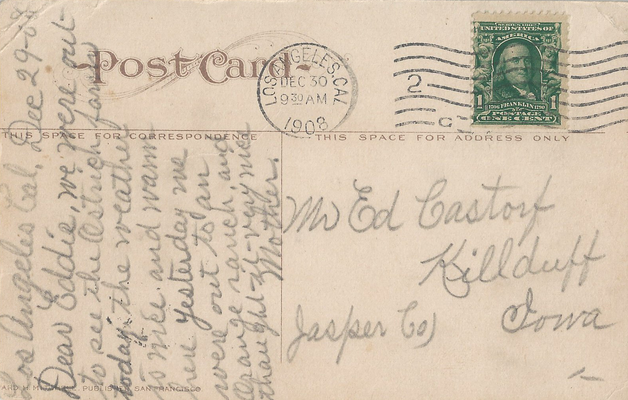 Post Card
LOS ANGELES, CAL.
DEC 30
9 30 AM
1908
2
C
SERIES 1902
UNITED STATES OF AMERICA
1 1
FRANKLIN
POSTAGE
ONE CENT
THIS SPACE FOR CORRESPONDENCE
THIS SPACE FOR ADDRESS ONLY
Los Angeles Cal, Dec 29-08
Dear Eddie, we were out
to see the Ostrich farm
today. the weather
is nice and warm
here yesterday we
were out to an
Orange ranch, and
thought it very nice
Mother.
Mr Ed Castorf
Killduff
Jasper Co) Iowa
PUBLISHER, SAN FRANCISCO.